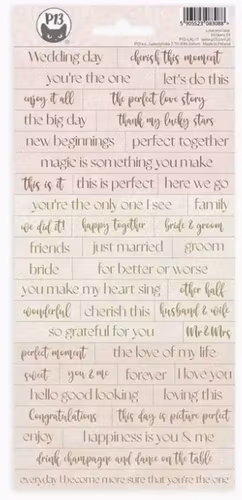 P13
5 905523 083088 >
Wedding day cherish this moment
you're the one let's do this
enjoy it all the perfect love story
the big day thank my lucky stars
new beginnings perfect together
magic is something you make
this is it this is perfect here we go
you're the only one I see family
we did it! happy together bride & groom
friends just married groom
bride for better or worse
you make my heart sing other half
wonderful cherish this husband & wife
so grateful for you Mr & Mrs
perfect moment the love of my life
sweet you & me forever I love you
hello good looking loving this
Congratulations this day is picture perfect
enjoy happiness is you & me
drink champagne and dance on the table
everyday I become more sure that you're the one